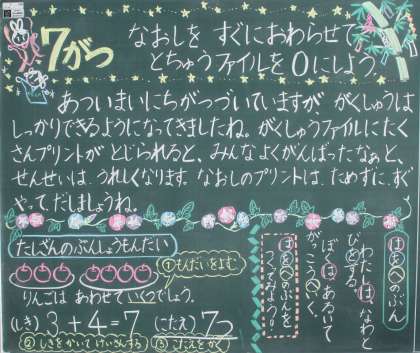 7がつ
なおしを すぐにおわらせて
とちゅうファイルを0にしよう。
あついまいにちがつづいていますが、がくしゅうは
しっかりできるようになってきましたね。がくしゅうファイルにたく
さんプリントが とじられると、みんなよくがんばったなぁと、
せんせいは、うれしくなります。なおしのプリントは、ためずに、すぐ
やって、だしましょうね。
たしざんのぶんしょうもんだい
①もんだいをよむ
りんごは あわせて いくつでしょう。
(しき) 3+4=7 (こたえ) 7つ
②しきをかいてけいさんする ③こたえをかく
はをへのぶん
わたしは、なわと
びをする。
ぼくは、あるいて
がっこうへいく。
はをへのぶんを
つくってみよう!!